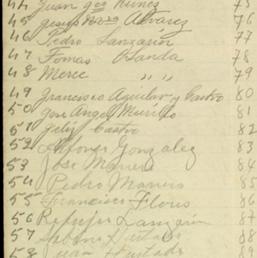 44 Juan gco Nuñez 75
45 Jesus Mora Alvarez 76
46 Pedro Lanzarin 77
47 Tomas Handa 78
48 Merce " " 79
49 Francisco Aguilar y Castro 80
50 Jose Angel Murillo 81
51 Felix Castro 82
52 Alfonso Gonzalez 83
53 Jose Maners 84
54 Pedro Maners 85
55 Francisco Floris 86
56 Refujio Lanzarin 87
57 Hurtado 88
58 Juan Hurtado 89